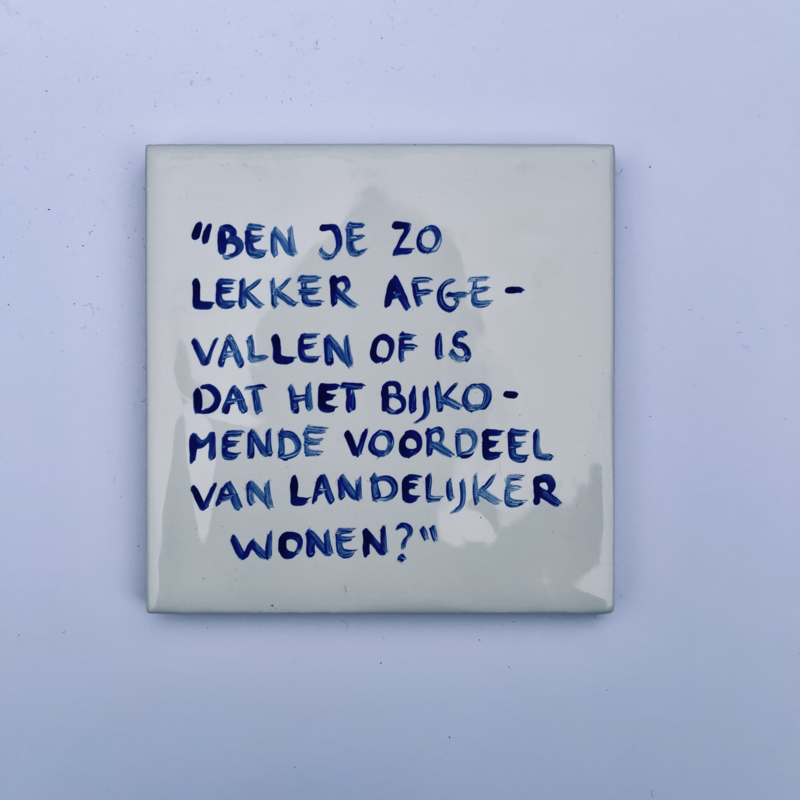 "BEN JE ZO
LEKKER AFGE-
VALLEN OF IS
DAT HET BIJKO-
MENDE VOORDEEL
VAN LANDELIJKER
WONEN?"